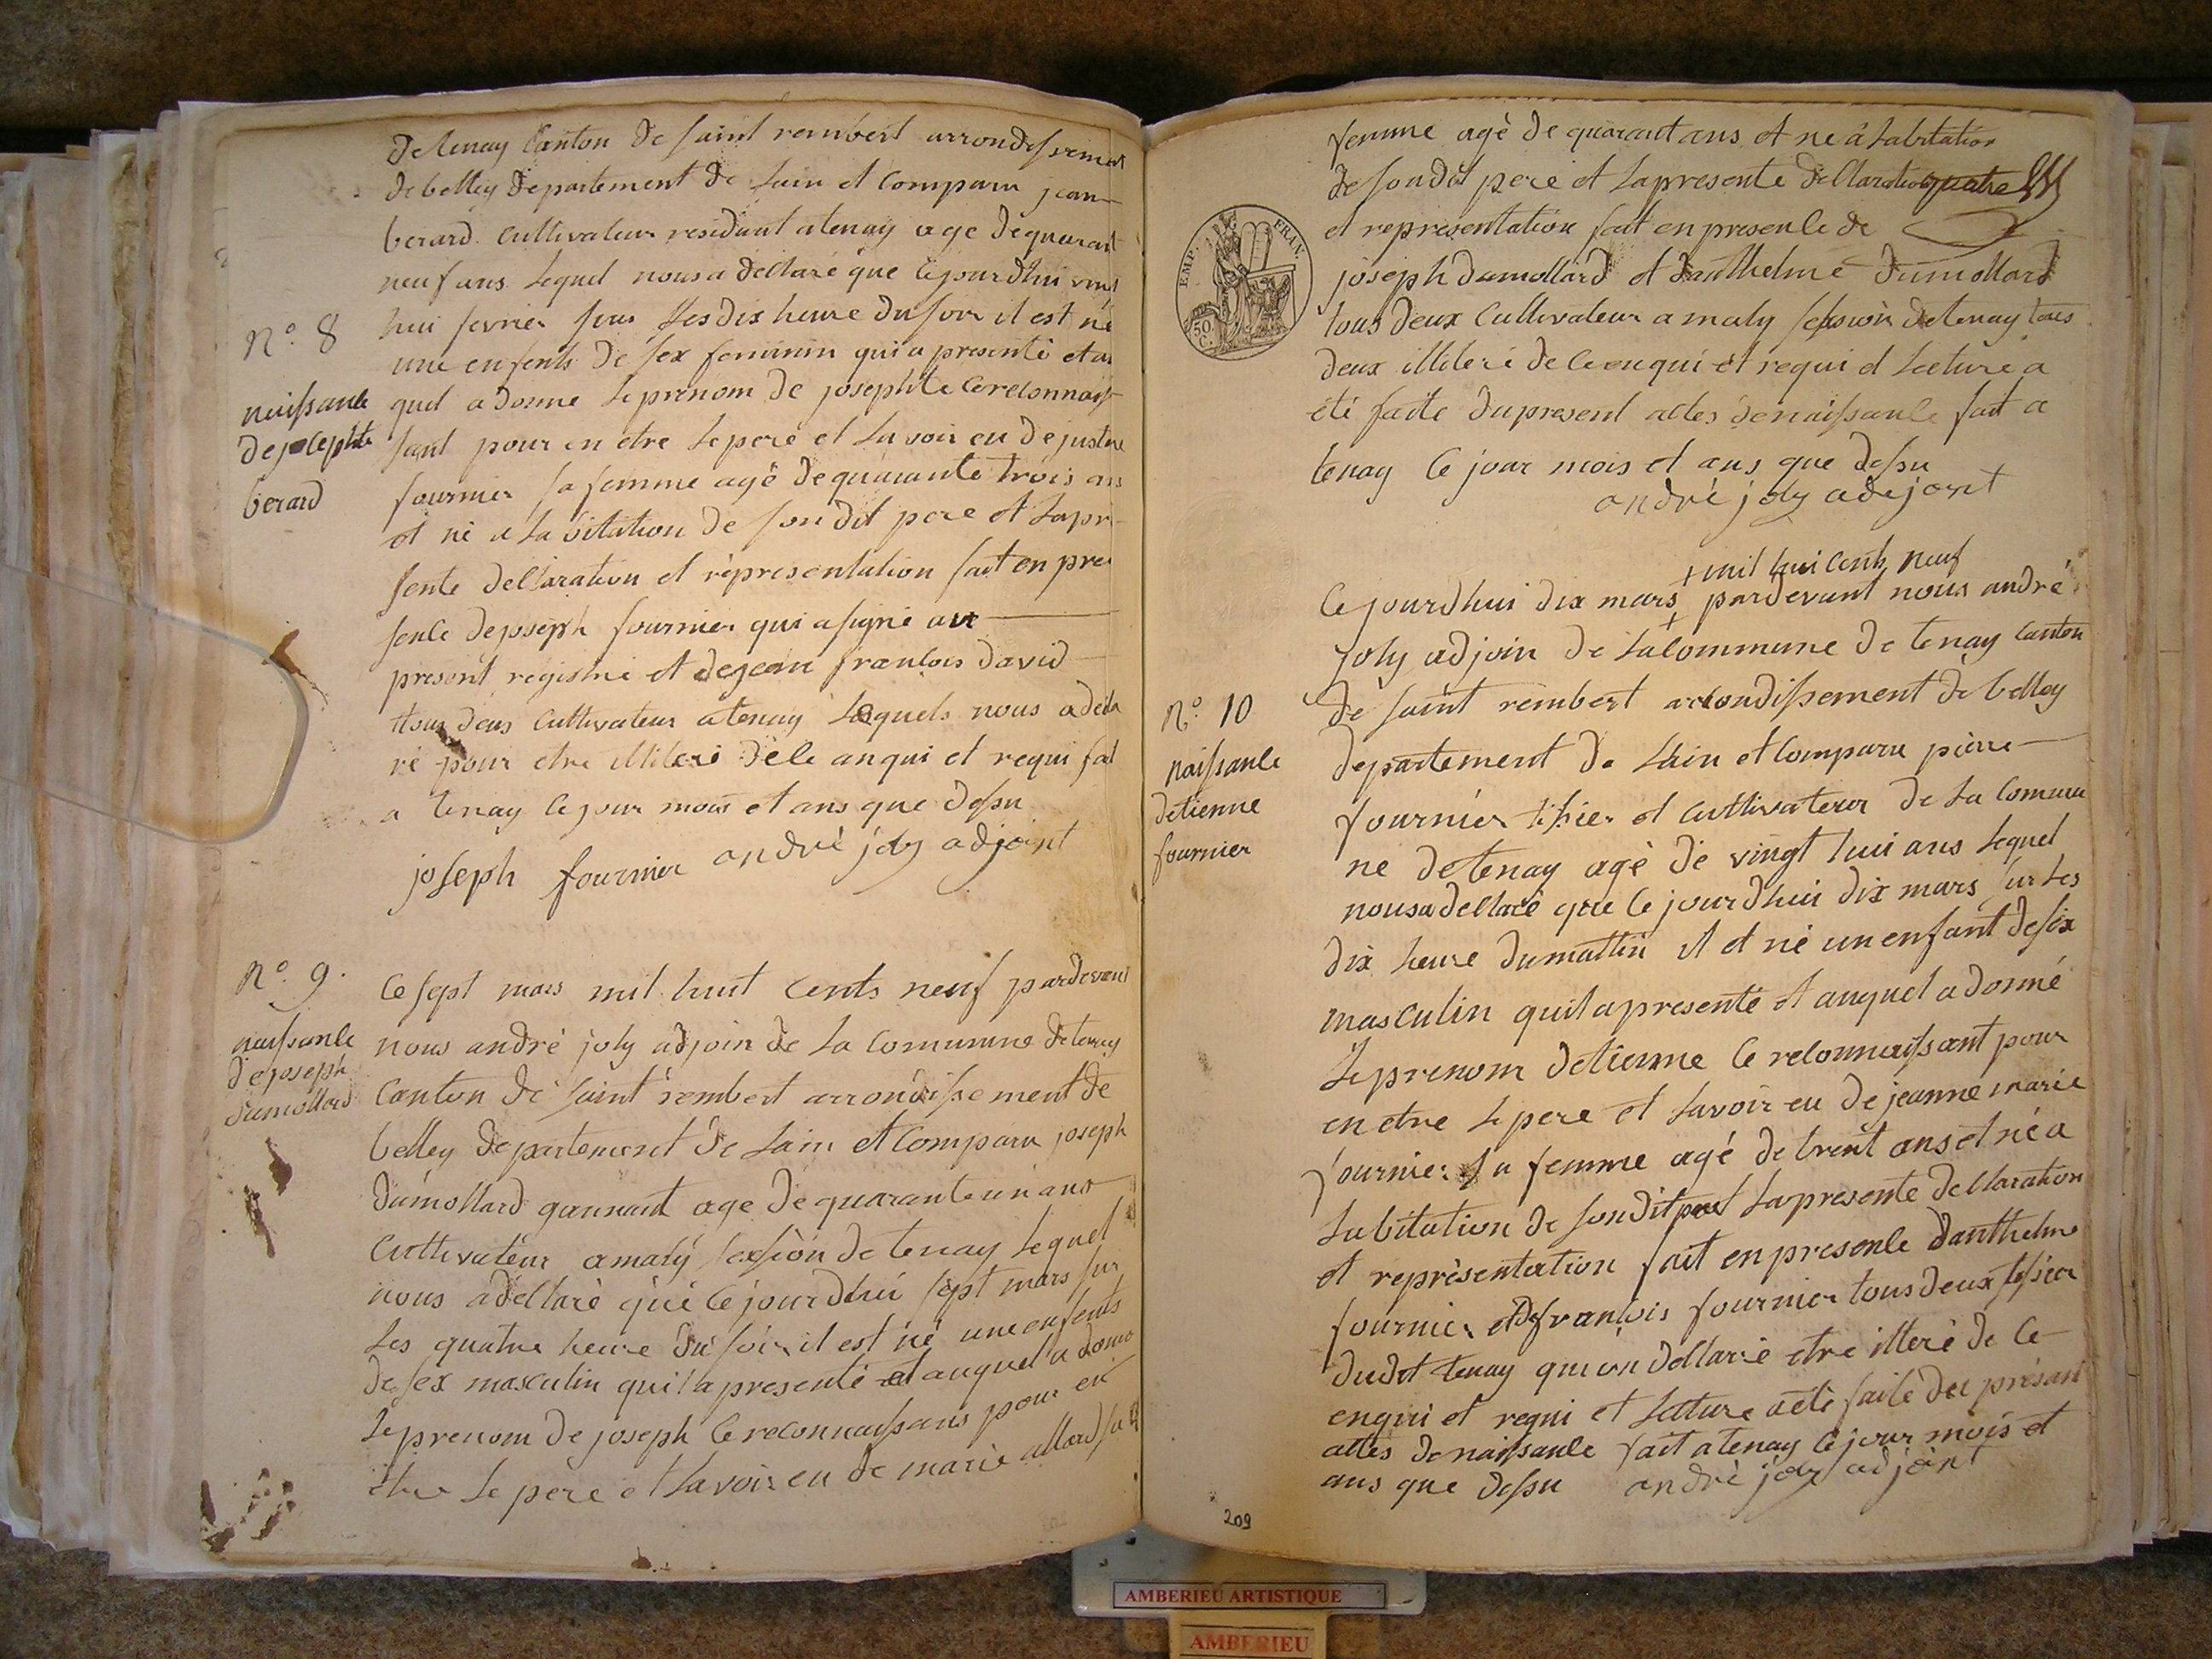 detenay Canton de saint rembert arrondissement
debelley departement de Lain et Comparu jean
berard cultivateur residant atenay age de quarant
neuf ans lequel nous a dellaré que Cejourdhui vint
N.o 8
hui fevrier sur les dix heure du soir il est né
une enfents de sex feminin qui a presenté et au
naissanle
de josephte
berard
quel a donne le prenom de josephte Cerelonnais
sant pour en etre le pere et lavoir eu de justine
fournier sa femme agé de quarante trois ans
et né a labitation de son dit pere et la pre
sente dellaration et representation fait en pre
senle de joseph fournier qui a signé au
present registre et de jean franlois david
tous deux cultivateur a tenay lequels nous a della
ré pour etre illiteré de le anqui et requi fait
a tenay le jour mois et ans que dessu
joseph fournier andré joly adjoint
N.o 9.
naissanle
de joseph
dumollard
Ce sept mars mil huit Cents neuf pardevant
nous andré joly adjoin de la Commune de tenay
Canton de saint rembert arrondissement de
belley departement de Lain et Comparu joseph
dumollard gannant age de quarante un ans
Cultivateur a maly session de tenay lequel
nous a dellaré que le jourdhui sept mars sur
les quatre heure du soir il est né une enfents
de sex masculin quil a presenté et auquel a donné
le prenom de joseph le reconnaissans pour en
etre le pere et lavoir eu de marie allard sa
femme agé de quarant ans et ne a labitation
de son dit pere et la presente dellaration quatre
et representation fait en presenle de
joseph dumollard et danthelme dumollard
tous deux Cultivateur a maly session de tenay tous
deux illiteré de le enqui et requi et lecture a
été faite du present actes de naissanle fait a
tenay le jour mois et ans que dessu
andré joly adejoint
EMP. FRAN.
50 C.
+ mil hui Cents neuf
Cejourdhui dix mars + pardevant nous andré
joly adjoin de la Commune de tenay Canton
N.o 10
naissanle
detienne
fournier
de saint rembert arrondissement de belley
departement de Lain et Comparu pierre
fournier tissier et cultivateur de la Commu
ne de tenay agé de vingt hui ans lequel
nous a dellaré que le jourdhui dix mars sur les
dix heure du mattin il et né un enfant de sex
masculin quil a presenté et auquel a donné
le prenom detienne le relonnaissant pour
en etre le pere et lavoir eu de jeanne marie
fournier sa femme agé de trent ans et né a
labitation de son dit pere la presente dellaration
et représentation fait en presenle danthelme
fournier et de franlois fournier tous deux tissier
dudit tenay qui on dellarré etre illeré de le
enqui et requi et lecture a été faite du présant
actes de naissanle fait a tenay le jour mois et
ans que dessu andré joly adjoint
209
AMBERIEU ARTISTIQUE
AMBERIEU